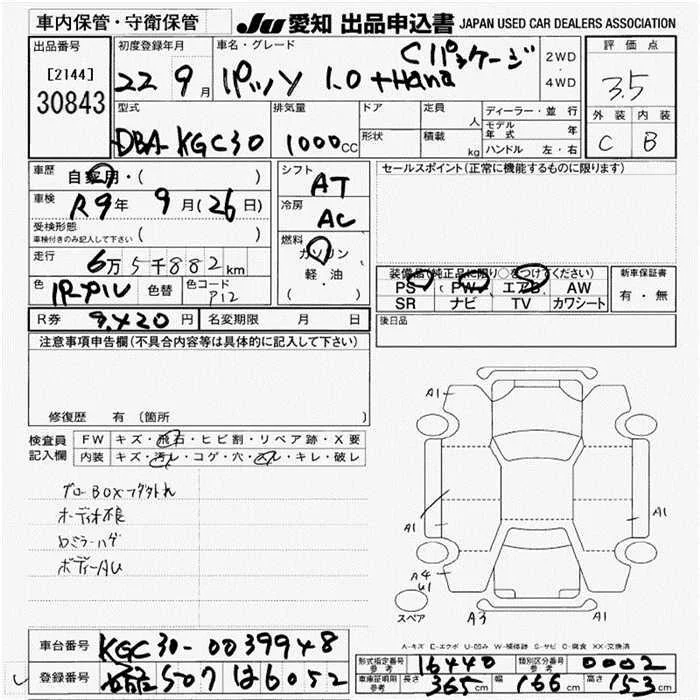 車内保管・守衛保管
JU 愛知 出品申込書 JAPAN USED CAR DEALERS ASSOCIATION
出品番号
[2144]
30843
初度登録年月
22 9月
車名・グレード
Cパッケージ
パッソ 1.0 +Hana
2WD
4WD
評価点
3.5
外装 内装
C B
型式
DBA-KGC30
排気量
1000cc
ドア
形状
定員 人
積載 kg
ディーラー・並行
モデル年式 年
ハンドル 左・右
車歴 自家用・( )
車検 R9年 9月(26日)
受検形態
車検付きのみ記入して下さい ( )
走行 6万5千882km
色 パール 色替 色コード P12
シフト AT
冷房 AC
燃料
ガソリン
軽・油
( ・ )
セールスポイント(正常に機能するものに限ります)
装備品(純正品に限り○をつけてください)
PS PW エアB AW
SR ナビ TV カワシート
新車保証書
有・無
R券 9,420円 名変期限 月 日
後日品
注意事項申告欄(不具合内容等は具体的に記入して下さい)
修復歴 有(箇所 )
検査員記入欄
FW キズ・飛石・ヒビ割・リペア跡・X要
内装 キズ・汚レ・コゲ・穴・スレ・キレ・破レ
グローBOX
オーディオ不良
ロミラーハゲ
ボディーAU
A1
A1
A1
A1
A4
U1
A3
A1
スペア
A-キズ E-エクボ U-凹み W-補修跡 S-サビ C-腐食 XX-交換済
車台番号 KGC30-0039948
登録番号 507 は 6052
形式指定番号 参考 16440
類別区分番号 参考 0002
車庫証明用 参考 長さ 365cm 幅 166cm 高さ 153cm